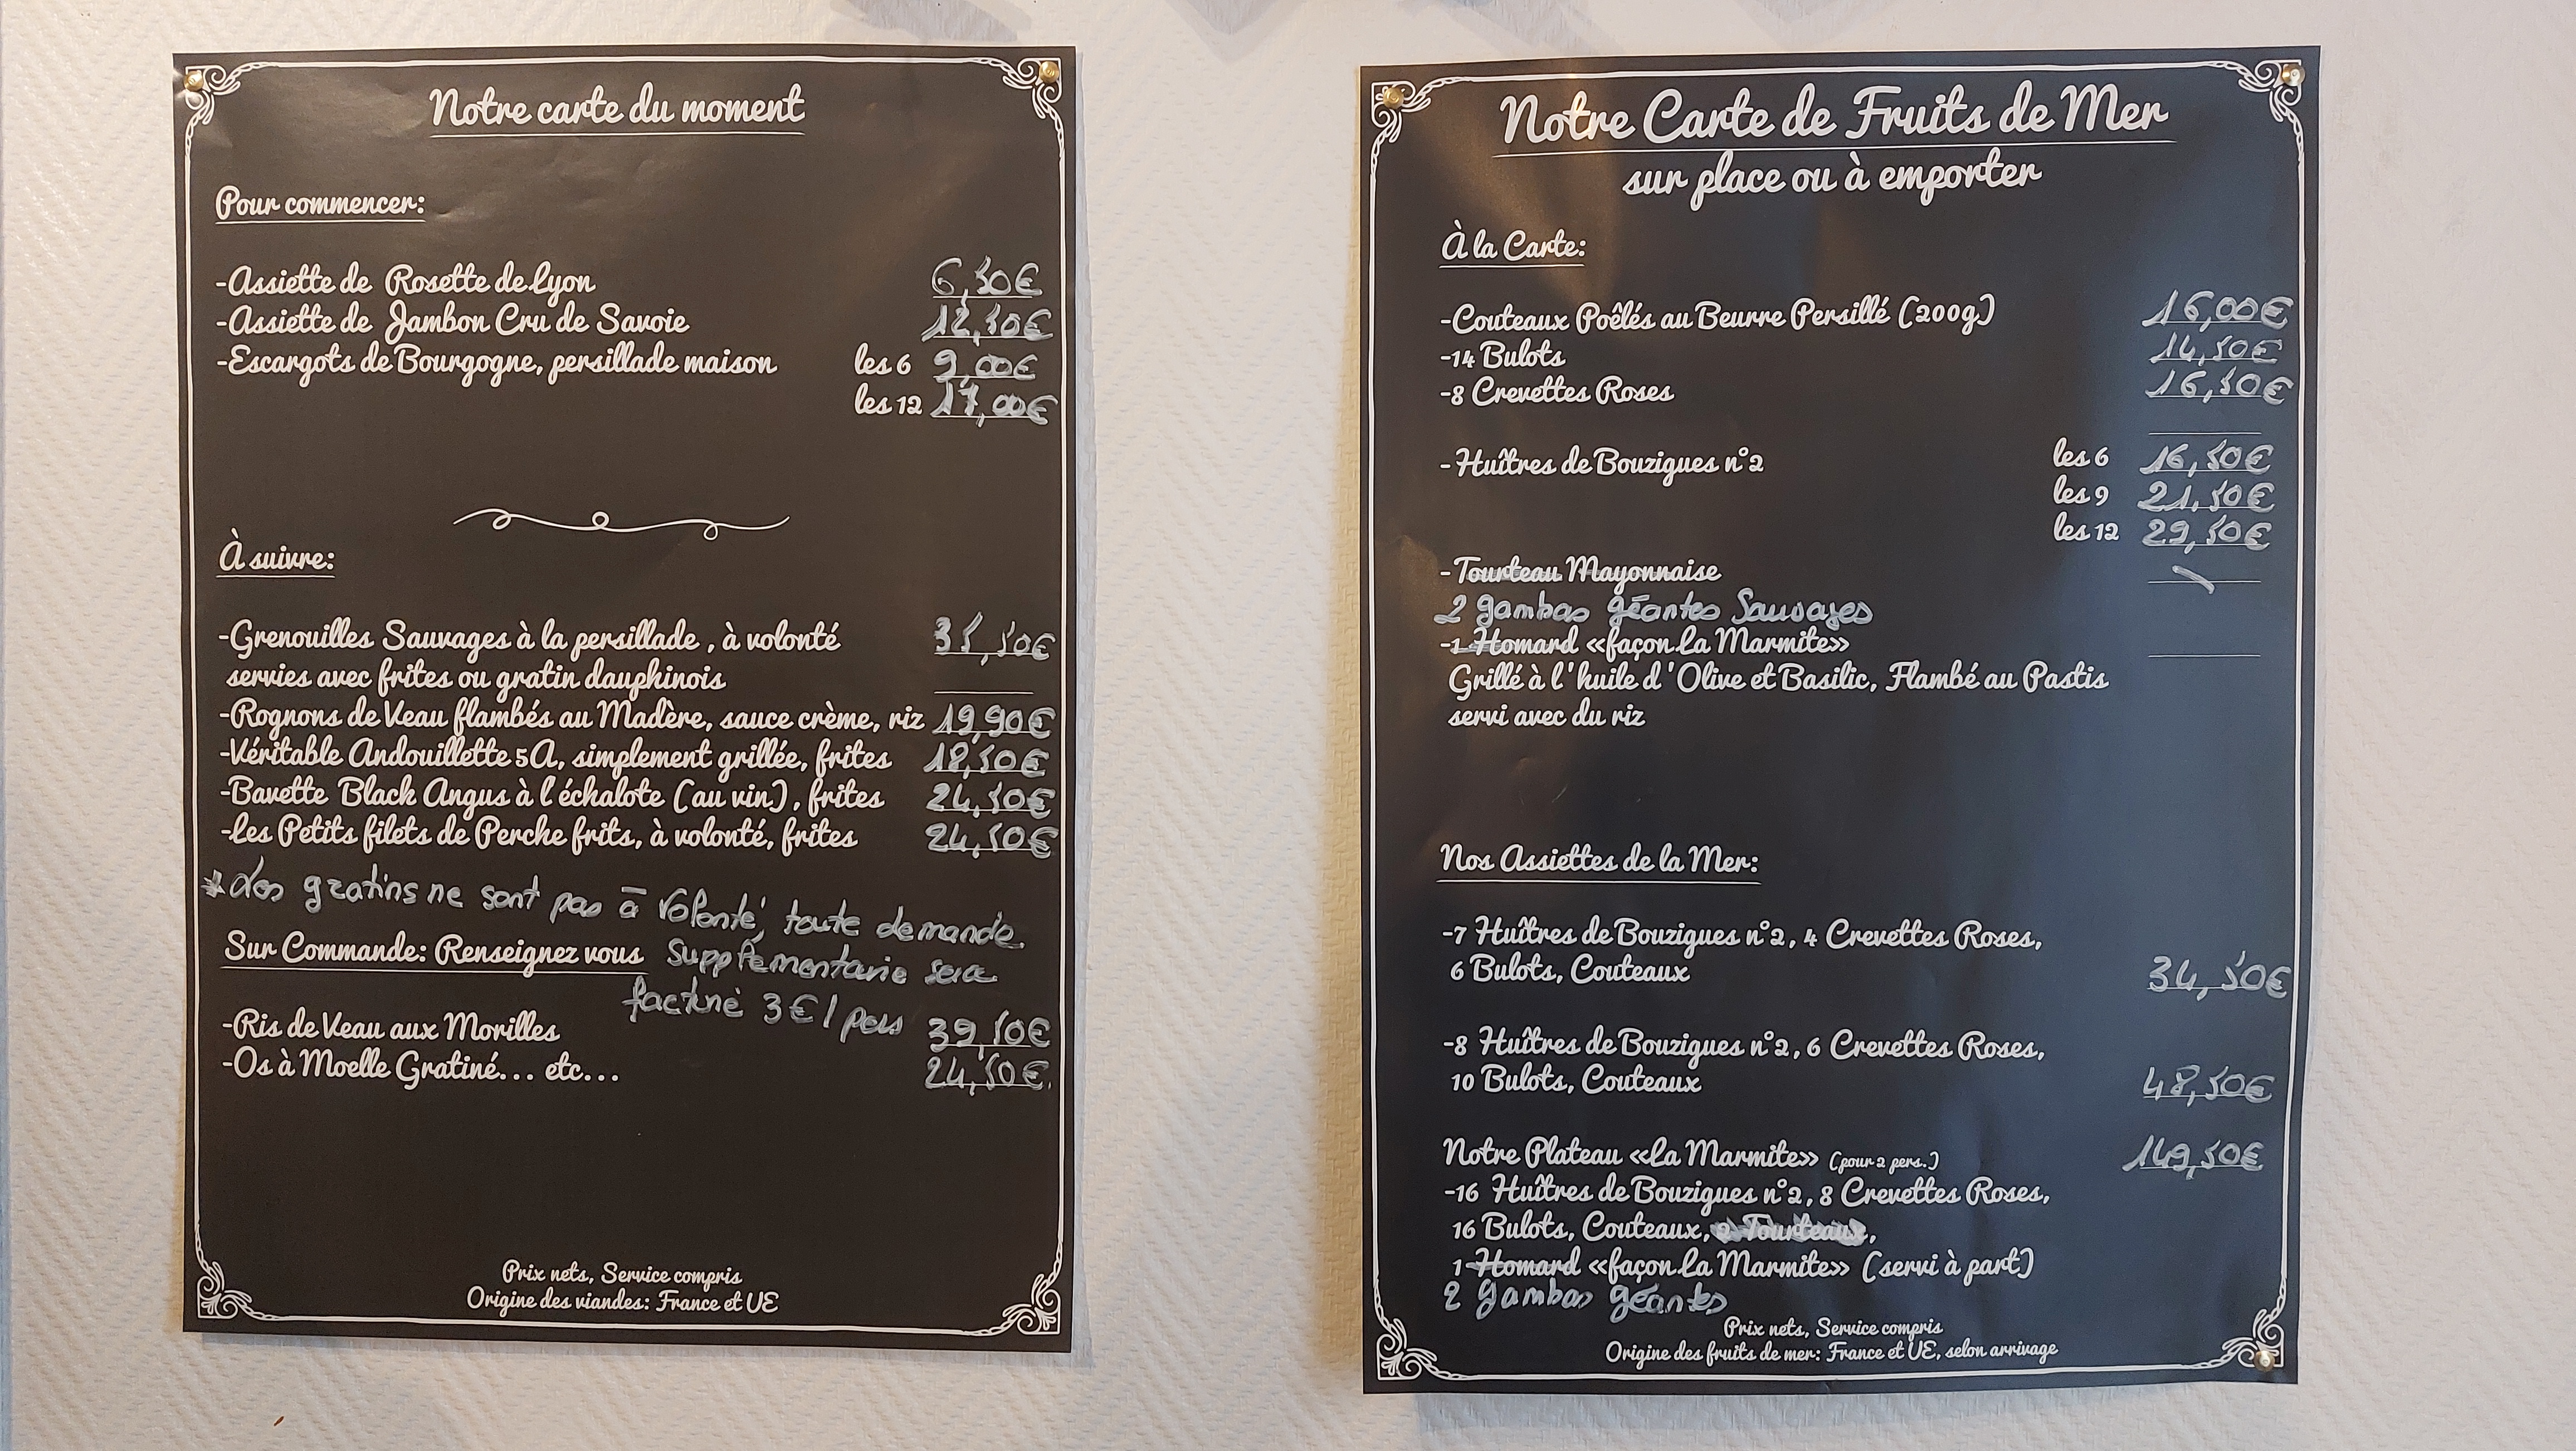 Notre carte du moment
Pour commencer:
-Assiette de Rosette de Lyon 6,50€
-Assiette de Jambon Cru de Savoie 12,50€
-Escargots de Bourgogne, persillade maison les 6 9,00€
les 12 17,00€
À suivre:
-Grenouilles Sauvages à la persillade, à volonté 35,50€
servies avec frites ou gratin dauphinois
-Rognons de Veau flambés au Madère, sauce crème, riz 19,90€
-Véritable Andouillette 5A, simplement grillée, frites 18,50€
-Bavette Black Angus à l'échalote (au vin), frites 24,50€
-Les Petits filets de Perche frits, à volonté, frites 24,50€
* Les gratins ne sont pas à volonté, toute demande
Supplémentaire sera
facturé 3€/pers
Sur Commande: Renseignez vous
-Ris de Veau aux Morilles 39,50€
-Os à Moelle Gratiné... etc... 24,50€
Prix nets, Service compris
Origine des viandes: France et UE
Notre Carte de Fruits de Mer
sur place ou à emporter
À la Carte:
-Couteaux Poêlés au Beurre Persillé (200g) 16,00€
-14 Bulots 14,50€
-8 Crevettes Roses 16,50€
-Huîtres de Bouzigues n°2 les 6 16,50€
les 9 21,50€
les 12 29,50€
-Tourteau Mayonnaise
2 gambas géantes Sauvages
-1 Homard «façon La Marmite»
Grillé à l'huile d'Olive et Basilic, Flambé au Pastis
servi avec du riz
Nos Assiettes de la Mer:
-7 Huîtres de Bouzigues n°2, 4 Crevettes Roses,
6 Bulots, Couteaux 34,50€
-8 Huîtres de Bouzigues n°2, 6 Crevettes Roses,
10 Bulots, Couteaux 48,50€
Notre Plateau «La Marmite» (pour 2 pers.) 149,50€
-16 Huîtres de Bouzigues n°2, 8 Crevettes Roses,
16 Bulots, Couteaux, 2 Tourteaux,
1 Homard «façon La Marmite» (servi à part)
2 gambas géantes
Prix nets, Service compris
Origine des fruits de mer: France et UE, selon arrivage